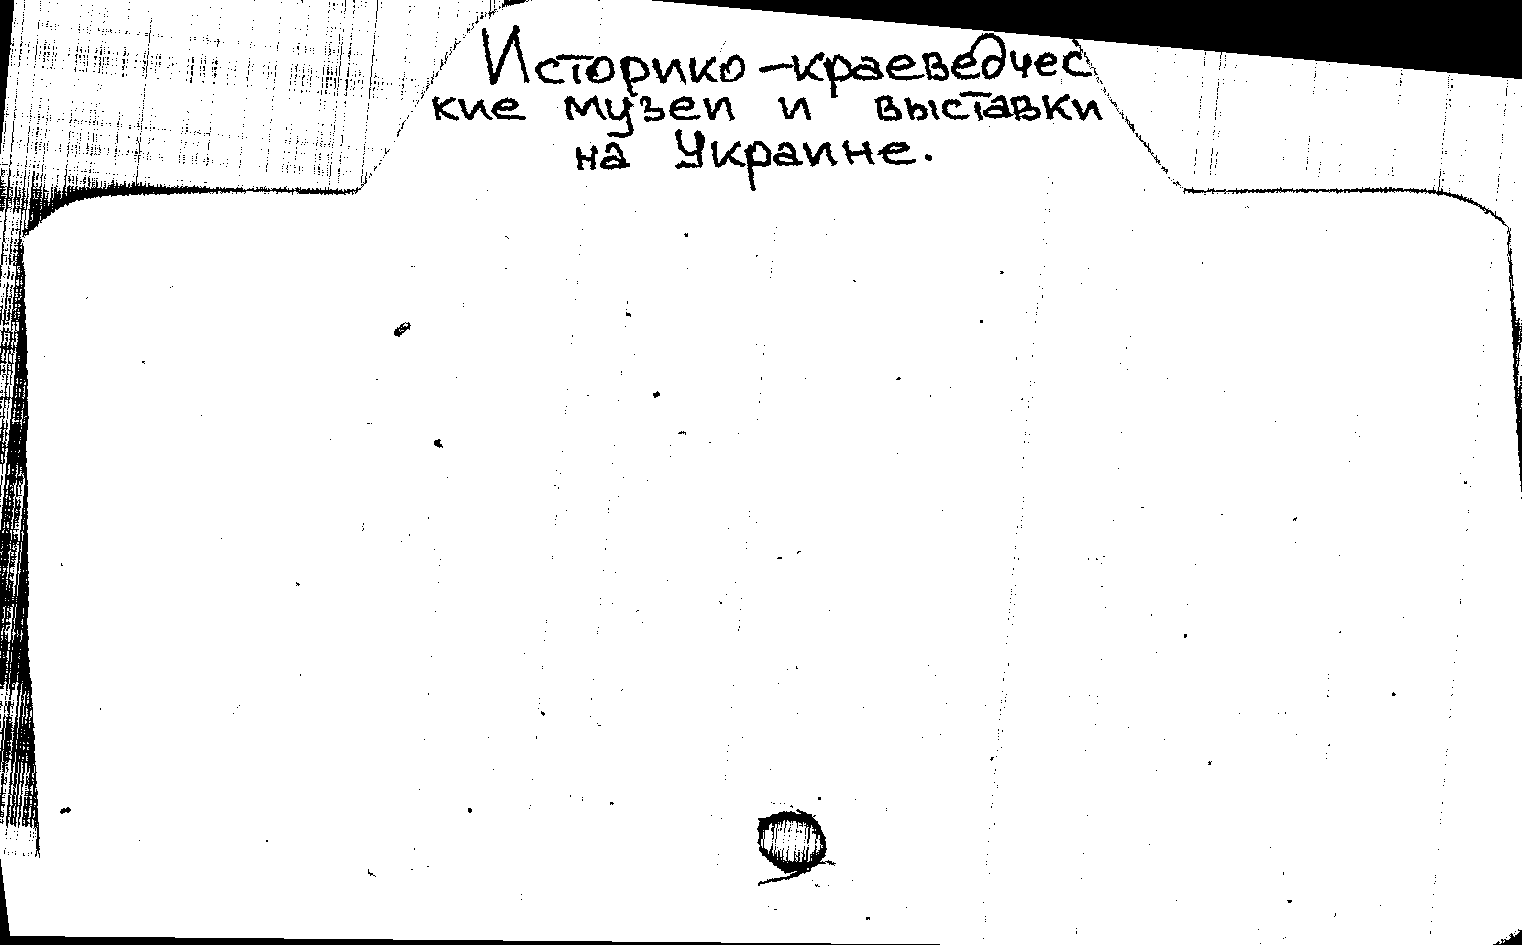 Историко-краеведчес
кие музеи и выставки
на Украине.